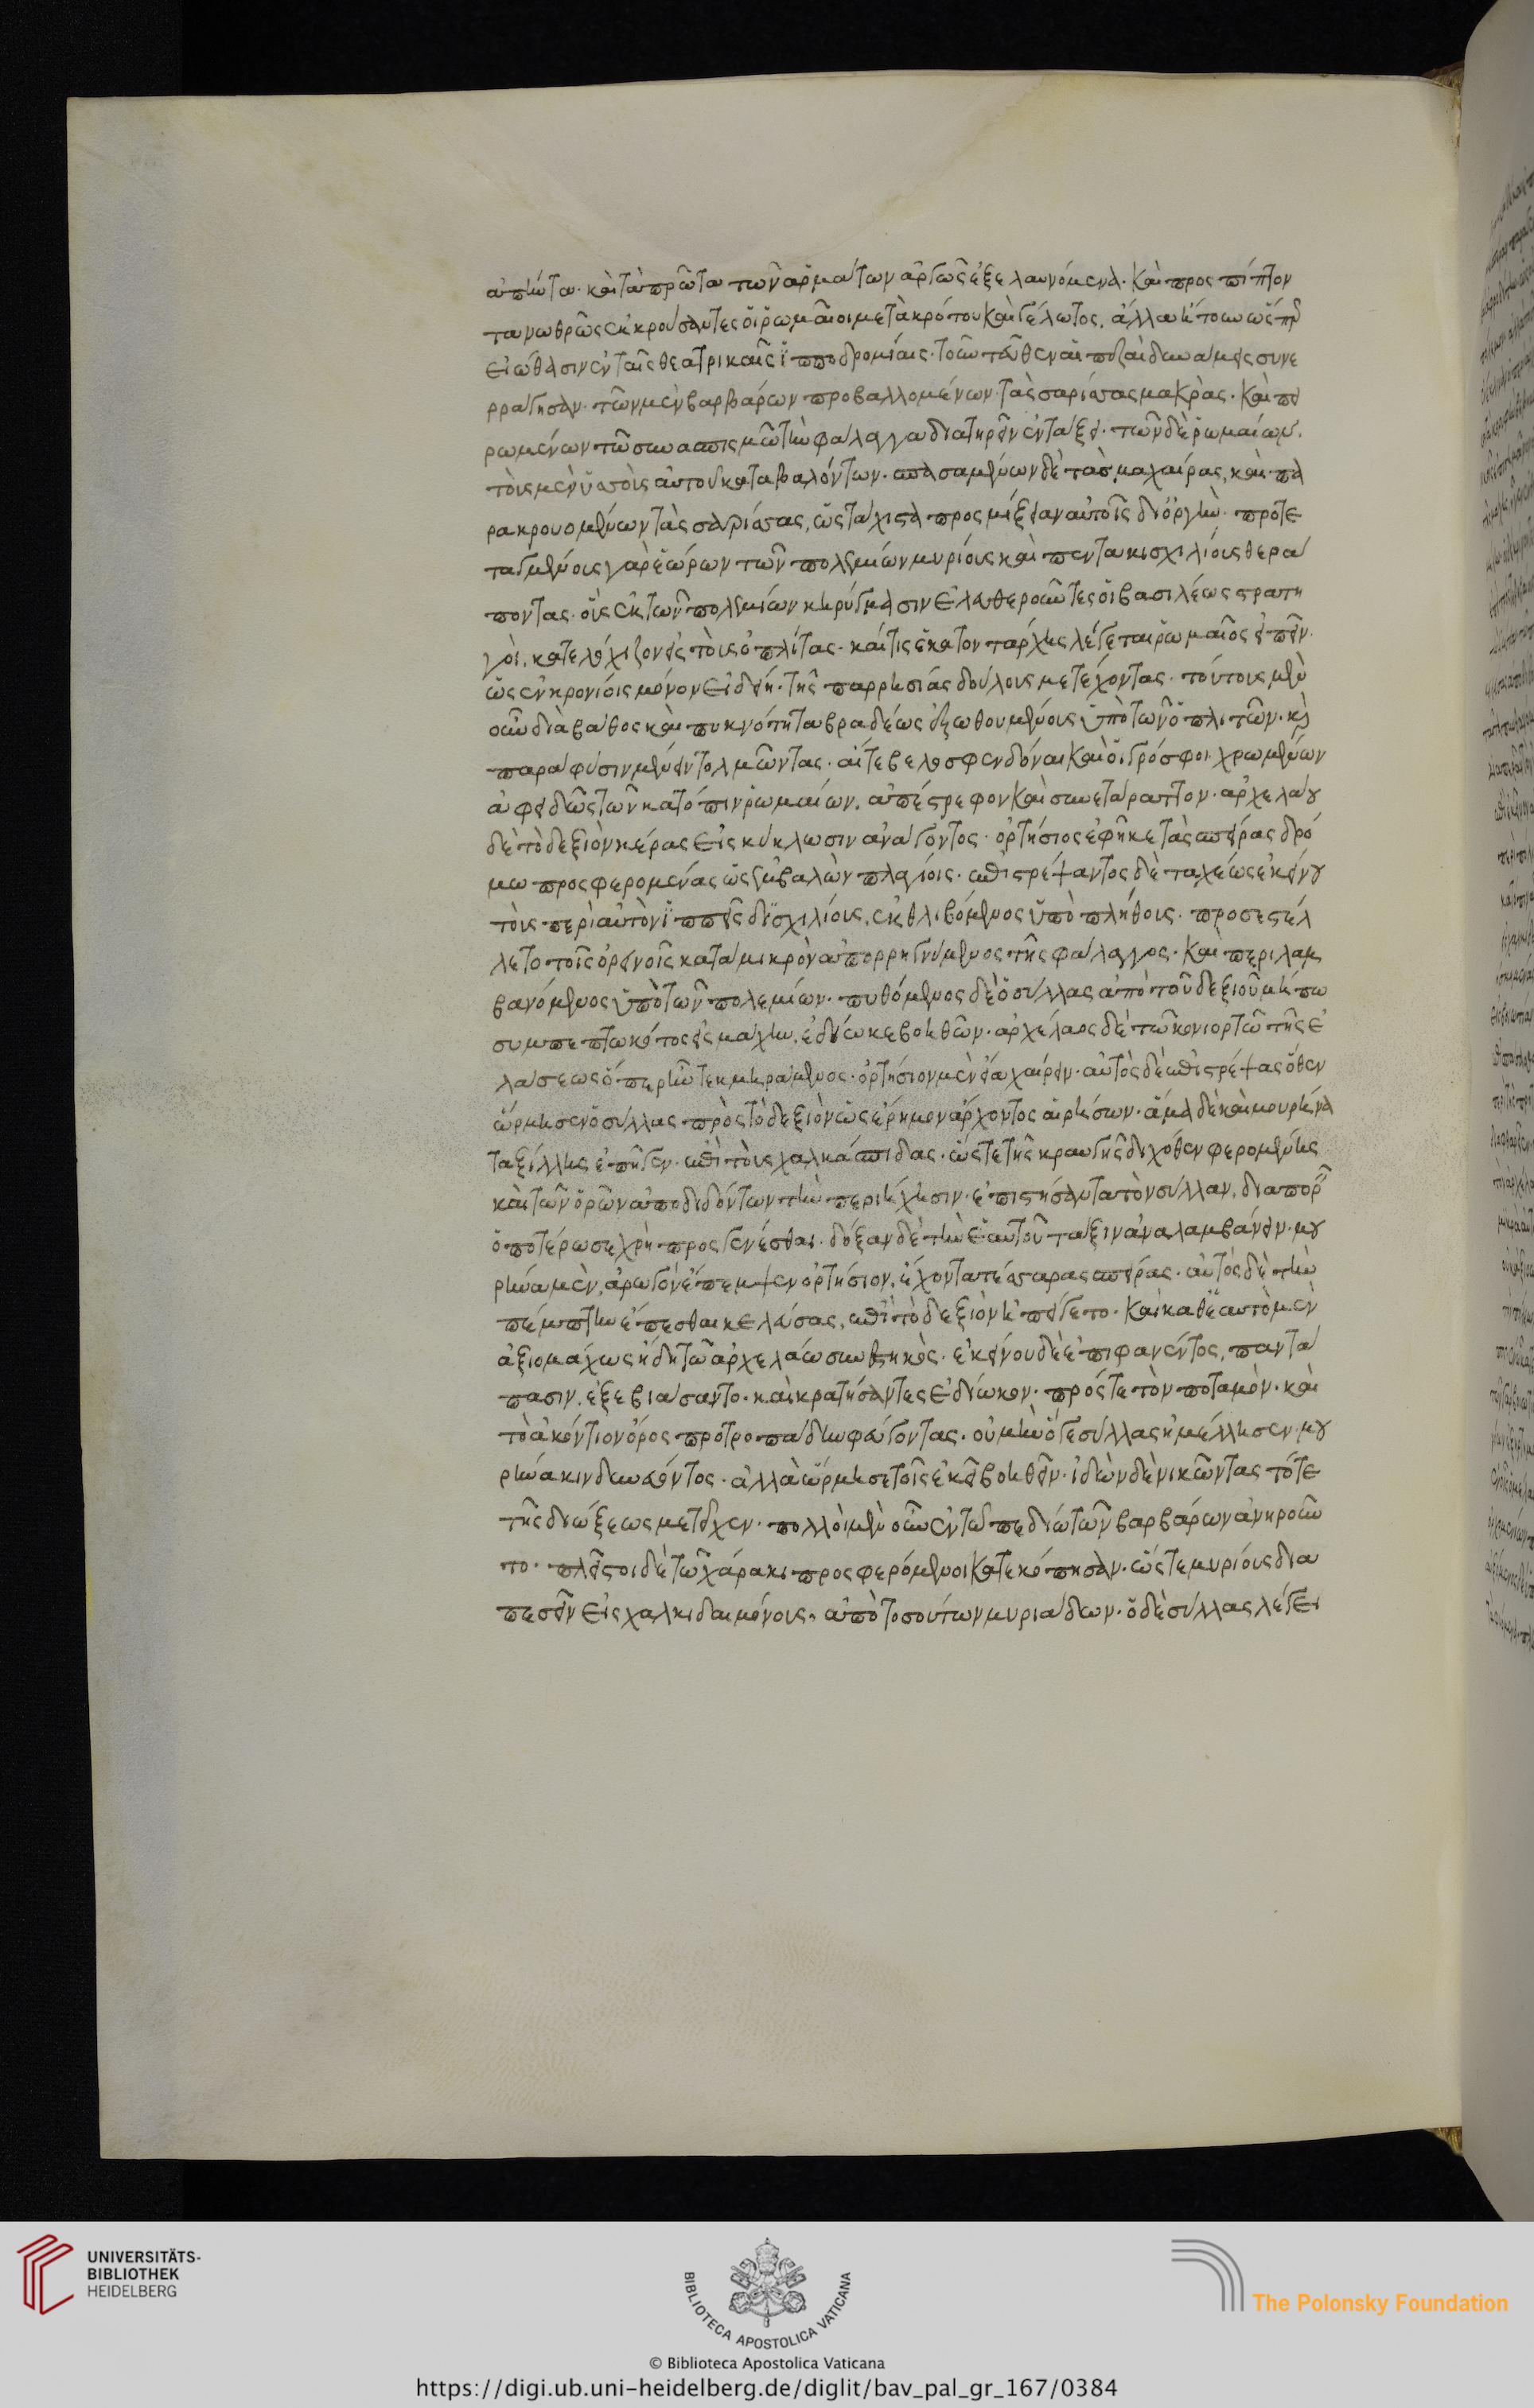 ἀπλῶτα· καὶ τὰ πρῶτα τῶν ἁρμάτων ἀργῶς ἐξελαυνόμενα· καὶ προσπίπτον
τα νωθρῶς ἐκκρούσαντες οἱ ῥωμαῖοι μετὰ κρότου καὶ γέλωτος, ἄλλα ᾔτουν ὥσπερ
εἰώθασιν ἐν ταῖς θεατρικαῖς ἱπποδρομίαις· τοὐντεῦθεν αἱ πεζαὶ δυνάμεις συνε
ρράγησαν· τῶν μὲν βαρβάρων προβαλλομένων τὰς σαρίσσας μακρὰς· καὶ πει
ρωμένων τῶ συνασπισμῶ τὴν φάλαγγα διατηρεῖν ἐν τάξει· τῶν δὲ ῥωμαίων,
τοὺς μὲν ὑσσοὺς αὐτοῦ καταβαλόντων· σπασαμένων δὲ τὰς μαχαίρας, καὶ πα
ρακρουομένων τὰς σαρίσσας, ὡς τάχιστα προσμίξειαν αὐτοῖς δι' ὀργὴν· προτε
ταγμένους γὰρ ἑώρων τῶν πολεμίων μυρίους καὶ πεντακισχιλίους θερά
ποντας· οὓς ἐκ τῶν πολεμίων κηρύγμασιν ἐλευθεροῦντες οἱ βασιλέως στρατη
γοὶ, κατελόχιζον εἰς τοὺς ὁπλίτας· καί τις ἑκατοντάρχης λέγεται ῥωμαῖος εἰπεῖν·
ὡς ἐν κρονίοις μόνον εἰδείη· τῆς παρρησίας δούλους μετέχοντας· τούτους μὲν
οὖν διὰ βάθος καὶ πυκνότητα βραδέως ἐξωθουμένους ὑπὸ τῶν ὁπλιτῶν· καὶ
παρὰ φύσιν μένειν τολμῶντας· αἵ τε βελοσφενδόναι καὶ οἱ γρόσφοι χρωμένων
ἀφειδῶς τῶν κατόπιν ῥωμαίων, ἀπέστρεφον καὶ συνετάραττον· ἀρχελάου
δὲ τὸ δεξιὸν κέρας εἰς κύκλωσιν ἀνάγοντος· ὁρτήσιος ἐφῆκε τὰς σπείρας δρό
μω προσφερομένας ὡς ἐμβαλὼν πλαγίοις· ἐπιστρέψαντος δὲ ταχέως ἐκείνου
τοὺς περὶ αὐτὸν ἱππεῖς δισχιλίους, ἐκθλιβόμενος ὑπὸ πλήθους· προσεστέλ
λετο τοῖς ὀρεινοῖς κατὰ μικρὸν ἀπορρηγνύμενος τῆς φάλαγγος· καὶ περιλαμ
βανόμενος ὑπὸ τῶν πολεμίων· πυθόμενος δὲ ὁ σύλλας ἀπὸ τοῦ δεξιοῦ μήπω
συμπεπτωκότος εἰς μάχην, ἐδίωκε βοηθῶν· ἀρχέλαος δὲ τῶ κονιορτῶ τῆς ἐ
λάσεως ὅπερ ἦν τεκμηράμενος· ὁρτήσιον μὲν εἴα χαίρειν· αὐτὸς δὲ ἐπιστρέψας ὅθεν
ὥρμησεν ὁ σύλλας πρὸς τὸ δεξιὸν ὡς ἔρημον ἄρχοντος αἱρήσων· ἅμα δὲ καὶ μουρήνα
ταξίλλης ἐπῆγεν ἐπὶ τοὺς χαλκάσπιδας· ὥστε τῆς κραυγῆς διχόθεν φερομένης
καὶ τῶν ὀρῶν ἀποδιδόντων τὴν περιήχησιν· ἐπιστήσαντα τὸν σύλλαν, διαπορεῖν
ὁποτέρωσε χρὴ προσγενέσθαι· δόξαν δὲ τὴν ἑαυτοῦ τάξιν ἀναλαμβάνειν· μου
ρήνα μὲν, ἀρωγὸν ἔπεμψεν ὁρτήσιον, ἔχοντα τέσσαρας σπείρας· αὐτὸς δὲ τὴν
πέμπτην ἕπεσθαι κελεύσας, ἐπὶ τὸ δεξιὸν ἠπείγετο· καὶ καθ' ἑαυτὸ μὲν
ἀξιομάχως ἤδη τῶ ἀρχελάω συνεστηκὸς· ἐκείνου δὲ ἐπιφανέντος, παντά
πασιν, ἐξεβιάσαντο· καὶ κρατήσαντες ἐδίωκον· πρός τε τὸν ποταμὸν· καὶ
τὸ ἀκόντιον ὄρος προτροπάδην φεύγοντας· οὐ μὴν ὅ γε σύλλας ἠμέλλησεν μου
ρήνα κινδυνεύοντος· ἀλλὰ ὥρμησε τοῖς ἐκεῖ βοηθεῖν· ἰδὼν δὲ νικῶντας τότε
τῆς διώξεως μετεῖχεν· πολλοὶ μὲν οὖν ἐν τῶ πεδίω τῶν βαρβάρων ἀνηροῦν
το· πλεῖστοι δὲ τῶ χάρακι προσφερόμενοι κατεκόπησαν· ὥστε μυρίους δια
πεσεῖν εἰς χαλκίδα μόνους, ἀπὸ τοσούτων μυριάδων· ὁ δὲ σύλλας λέγει
UNIVERSITÄTS-
BIBLIOTHEK
HEIDELBERG
BIBLIOTECA APOSTOLICA VATICANA
The Polonsky Foundation
© Biblioteca Apostolica Vaticana
https://digi.ub.uni-heidelberg.de/diglit/bav_pal_gr_167/0384